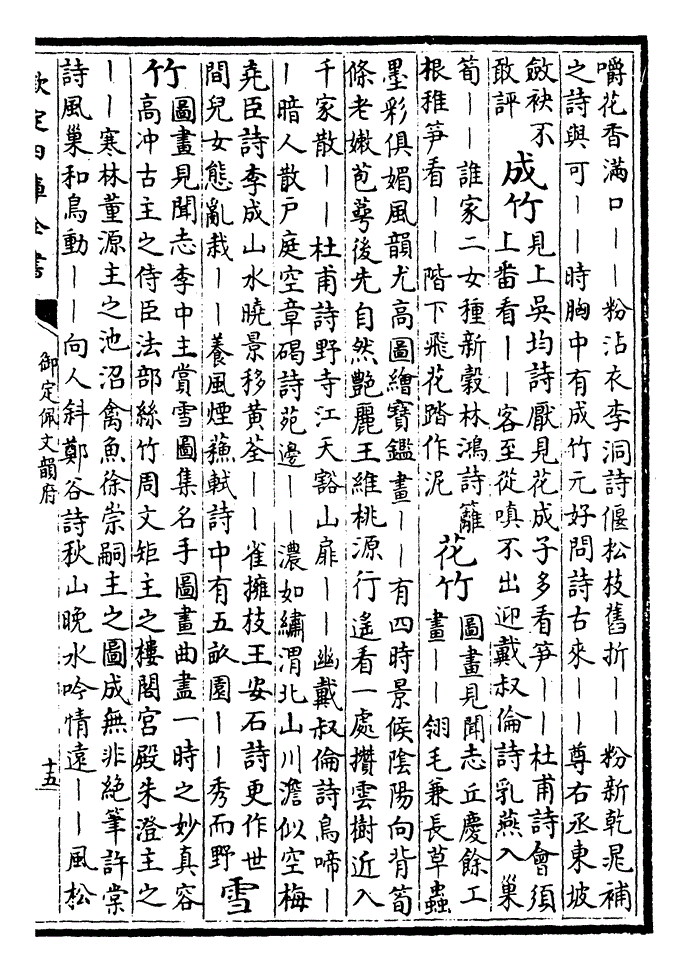 嚼花香滿口丨丨粉沾衣李洞詩偃松枝舊折丨丨粉新乾晁補
之詩與可丨丨時胸中有成竹元好問詩古來丨丨尊右丞東坡
斂袂不
敢評
成竹
見上吳均詩厭見花成子多看笋丨丨杜甫詩會須
上番看丨丨客至從嗔不出迎戴叔倫詩乳燕入巢
筍丨丨誰家二女種新榖林鴻詩籬
根稚笋看丨丨階下飛花踏作泥
花竹
圖畫見聞志丘慶餘工
畫丨丨翎毛兼長草蟲
墨彩俱媚風韻尤高圖繪寶鑑畫丨丨有四時景候陰陽向背筍
條老嫩苞蕚後先自然艷麗王維桃源行遙看一處攢雲樹近入
千家散丨丨杜甫詩野寺江天豁山扉丨丨幽戴叔倫詩鳥啼丨
丨暗人散戶庭空章碣詩苑邊丨丨濃如繡渭北山川澹似空梅
堯臣詩李成山水曉景移黃荃丨丨雀擁枝王安石詩更作世
間兒女態亂栽丨丨養風煙蘓軾詩中有五畝園丨丨秀而野
雪
竹
圖畫見聞志李中主賞雪圖集名手圖畫曲盡一時之妙真容
高冲古主之侍臣法部絲竹周文矩主之樓閣宮殿朱澄主之
丨丨寒林董源主之池沼禽魚徐崇嗣主之圖成無非絶筆許棠
詩風巢和鳥動丨丨向人斜鄭谷詩秋山晚水吟情遠丨丨風松
欽定四庫全書
御定佩文韻府
十五